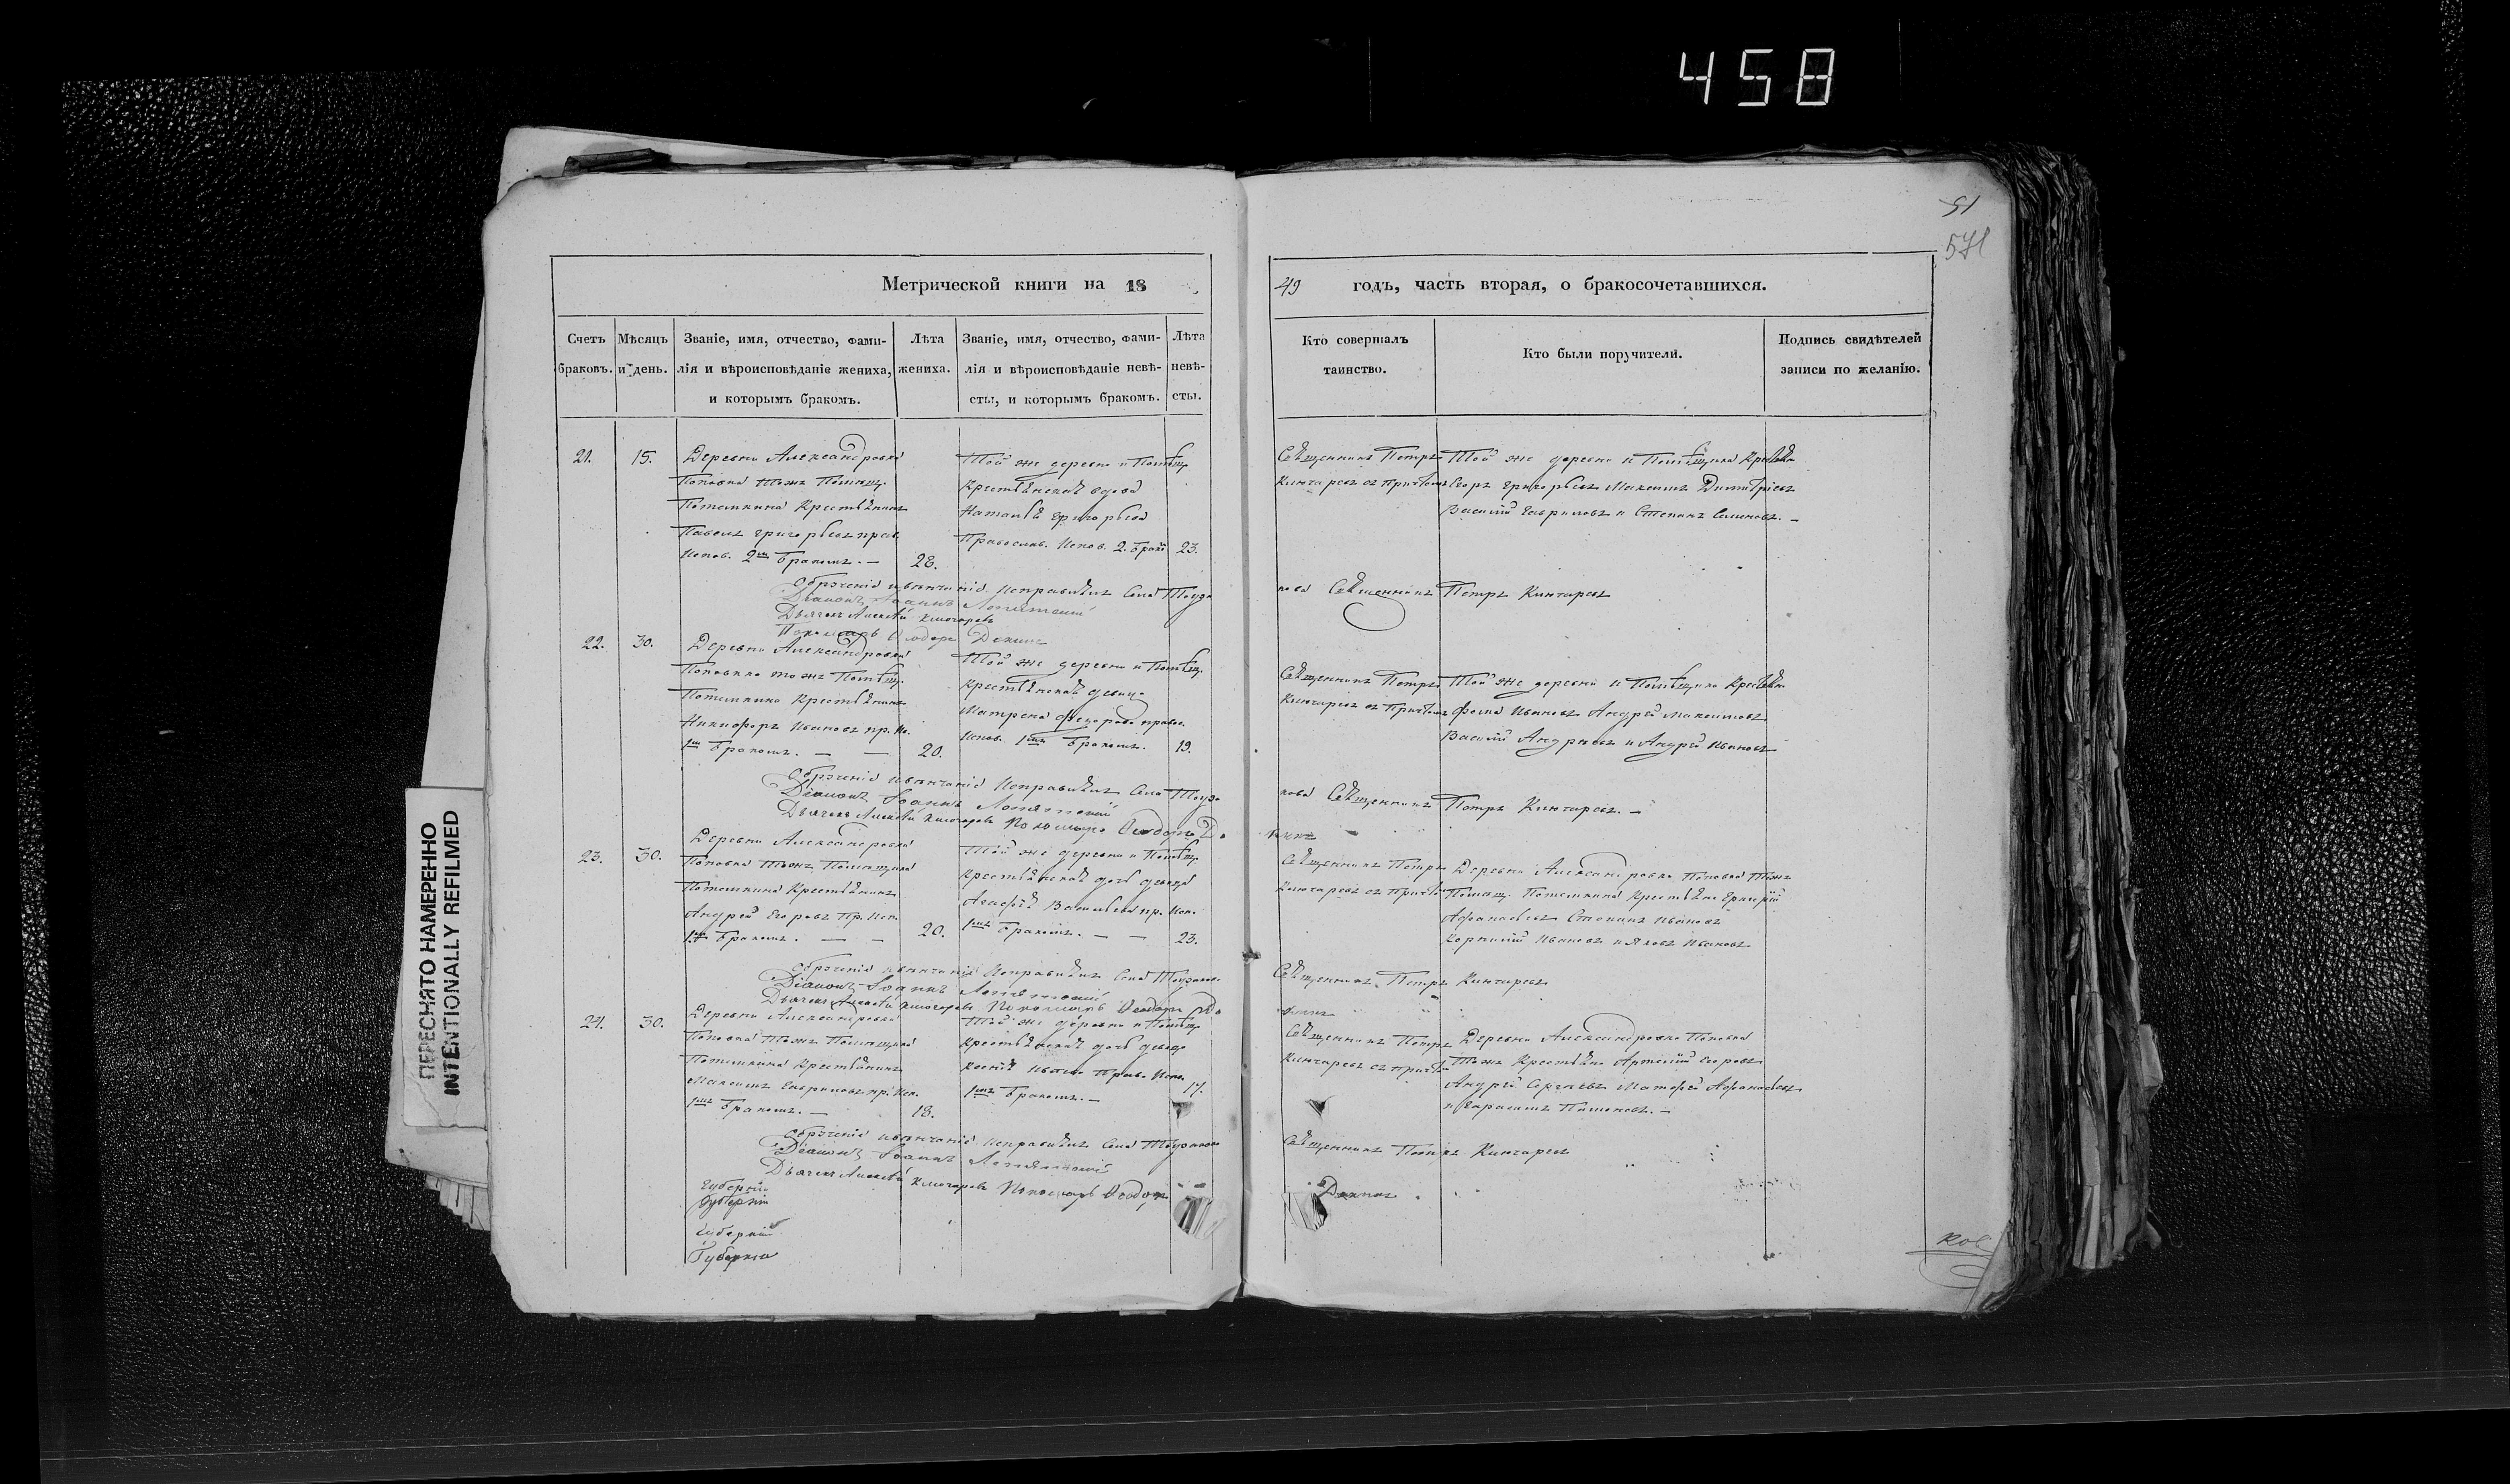 458
51
571
Метрической книги на 18
49 годъ, часть вторая, о бракосочетавшихся.
Счетъ браковъ.
Мѣсяцъ и день.
Званіе, имя, отчество, фами-
лія и вѣроисповѣданіе жениха,
и которымъ бракомъ.
Лѣта жениха.
Званіе, имя, отчество, фами-
лія и вѣроисповѣданіе невѣ-
сты, и которымъ бракомъ.
Лѣта невѣ-
сты.
Кто совершалъ
таинство.
Кто были поручители.
Подпись свидѣтелей
записи по желанію.
21.
15.
Деревни Александровки
Поповка тожъ Помѣщ.
Потемкина Крестьянинъ
Павелъ Григорьевъ прав.
Испов. 2мъ бракомъ. —
28.
Той же деревни и Помѣщ
Крестьянская вдова
Наталья Григорьева
Православ. Испов. 2. брако
23.
Священникъ Петръ
Ключаревъ съ Причтомъ
Той же деревни и Помѣщика Крестьяне
Егоръ Григорьевъ Максимъ Димитріевъ
Василій Гавриловъ и Степанъ Семеновъ. —
Обрученія и вѣнчаніе Исправилъ Села
Священникъ Петръ Ключаревъ
Діаконъ Іоаннъ
Дьячекъ Алексѣй Ключаревъ
Пономарь Ѳеодоръ
22.
30.
Деревни Александровки
Поповка тожъ Помѣщ.
Потемкина Крестьянинъ
Никифоръ Ивановъ пр. Ис.
1мъ бракомъ. — —
20.
Той же деревни и Помѣщ.
Крестьянская девица
Матрена Федорова правос.
Испов. 1мъ бракомъ.
19.
Священникъ Петръ
Ключаревъ съ Причтомъ
Той же деревни и Помѣщика Крестьяне
Фома Ивановъ Андрей Максимовъ
Василій Андреевъ и Андрей Ивановъ
Обрученія и вѣнчаніе Исправилъ Села
Священникъ Петръ Ключаревъ. —
Діаконъ Іоаннъ
Дьячекъ Алексѣй Ключаревъ Пономарь Ѳеодоръ
23.
30.
Деревни Александровки
Поповка тожъ Помѣщика
Потемкина Крестьянинъ
Андрей Егоровъ Пр. Исп.
1мъ бракомъ. — —
20.
Той же деревни и Помѣщ
Крестьянская дочь девица
Агафья Васильева пр. Исп.
1мъ бракомъ. — —
23.
Священникъ Петръ
Ключаревъ съ Причтом
Деревни Александровки Поповка Тожъ
Помѣщ. Потемкина Крестьяне
Афанасьевъ Степанъ Ивановъ
Корнилій Ивановъ и Яковъ Ивановъ
Обрученія и вѣнчаніе Исправилъ Села
Священникъ Петръ Ключаревъ
Діаконъ Іоаннъ
Дьячекъ Алексѣй Ключаревъ Пономарь Ѳеодоръ
24.
30.
Деревни Александровки
Поповка Тожъ Помѣщика
Потемкина Крестьянинъ
Максимъ Гавриловъ пр. Исп.
1мъ бракомъ. —
18.
Той же деревни и Помѣщ
Крестьянская дочь девица
1мъ бракомъ. —
17.
Священникъ Петръ
Ключаревъ съ Причто
Деревни Александровки Поповка
Тожъ Крестьяне Артемій Егоровъ
Андрей Сергѣевъ Матфей Афанасьевъ
и Герасимъ
Обрученія и вѣнчаніе Исправилъ Села
Священникъ Петръ Ключаревъ
Діаконъ Іоаннъ
Дьячекъ Алексѣй Ключаревъ Пономарь Ѳеодоръ
Губерніи
Губерніи
Губерніи
Губерніи
ПЕРЕСНЯТО НАМЕРЕННО
INTENTIONALLY REFILMED